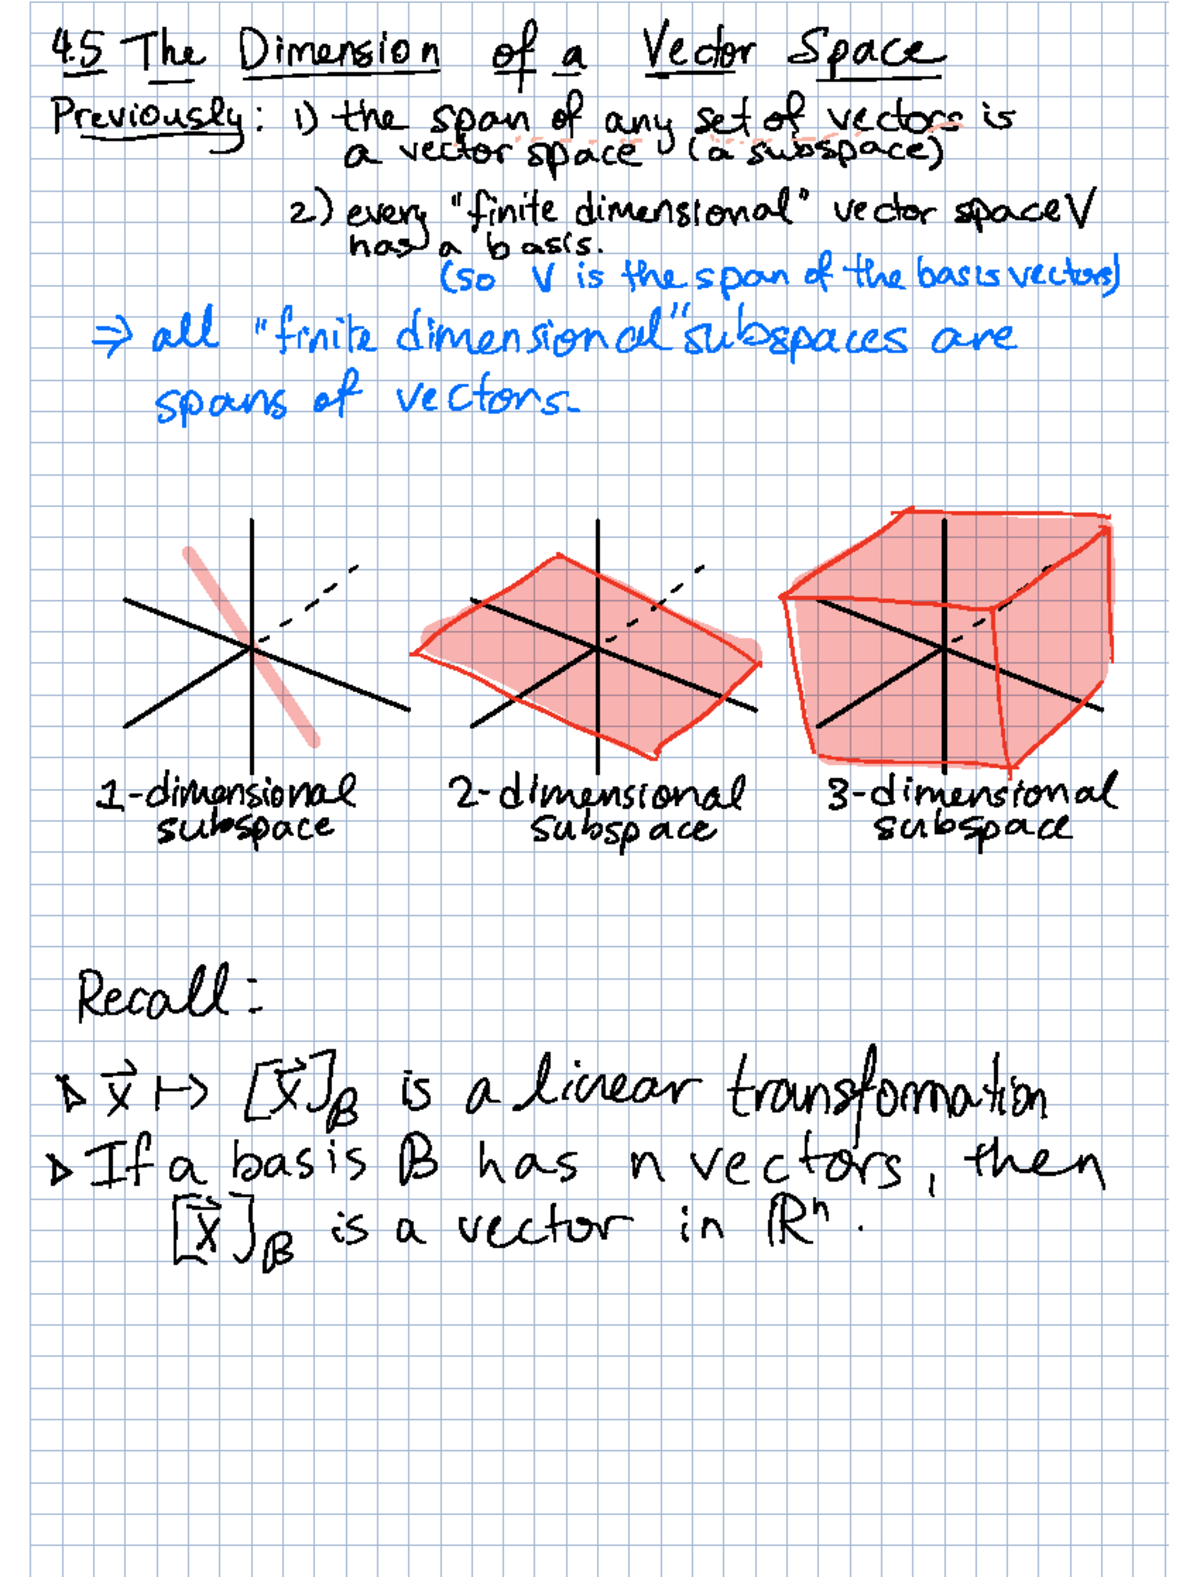 4.5 The Dimension of a Vector Space
Previously: 1) the span of any set of vectors is
a vector space (a subspace)
2) every "finite dimensional" vector space V
has a basis.
(so V is the span of the basis vectors)
⇒ all "finite dimensional" subspaces are
spans of vectors.
1-dimensional
subspace
2-dimensional
subspace
3-dimensional
subspace
Recall:
▷ x⃗ ↦ [x⃗]_B is a linear transformation
▷ If a basis B has n vectors, then
[x⃗]_B is a vector in ℝⁿ.